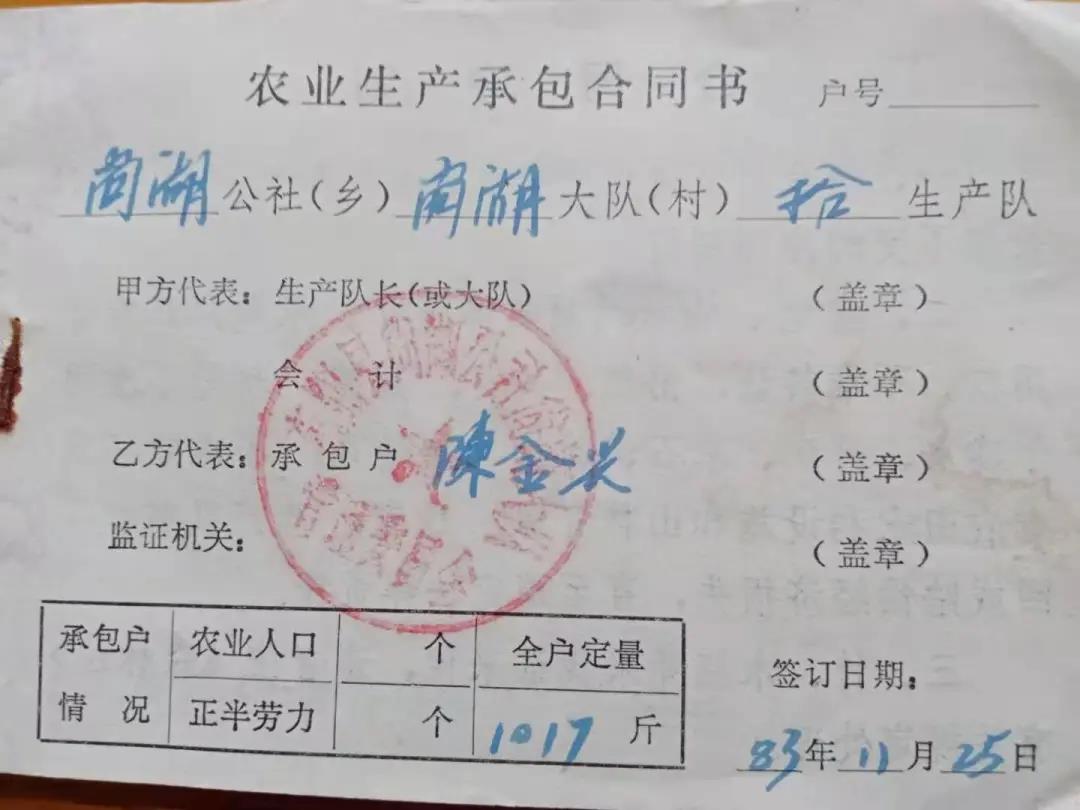 农业生产承包合同书 户号
尚湖公社(乡)尚湖大队(村)拾生产队
甲方代表：生产队长(或大队) (盖章)
会计 (盖章)
乙方代表：承包户 陳金兴 (盖章)
监证机关： (盖章)
承包户情况 农业人口 个 全户定量
正半劳力 个 1017斤
签订日期：
83年11月25日
管理委员会